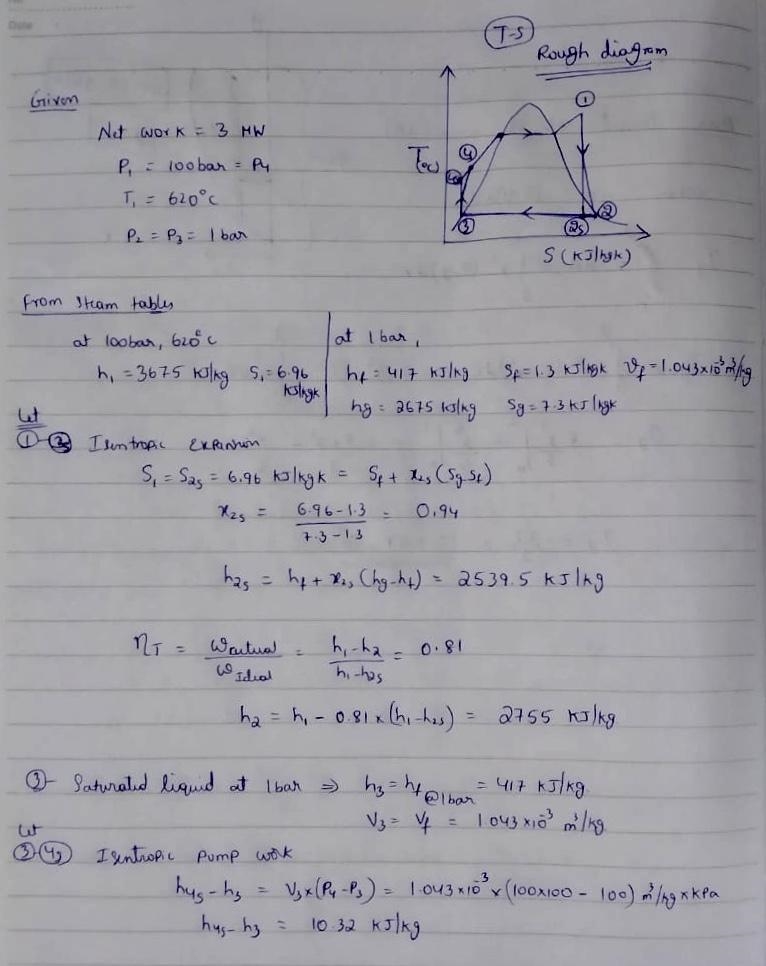 Date
T-S
Rough diagram
Given
Net work = 3 MW
P₁ = 100bar = P₄
T₁ = 620°C
P₂ = P₃ = 1 bar
T(°C)
①
④
4s
③
2s
②
S (KJ/kgK)
From steam tables
at 100bar, 620°C
h₁ = 3675 KJ/kg S₁ = 6.96 KJ/kgK
at 1 bar,
hf = 417 KJ/kg Sf = 1.3 KJ/kgK Vf = 1.043×10⁻³ m³/kg
hg = 2675 KJ/kg Sg = 7.3 KJ/kgK
Let
①-②s Isentropic Expansion
S₁ = S₂s = 6.96 KJ/kgK = Sf + x₂s (Sg Sf)
x₂s = (6.96-1.3)/(7.3-1.3) = 0.94
h₂s = hf + x₂s (hg-hf) = 2539.5 KJ/kg
ηT = Wactual/WIdeal = (h₁-h₂)/(h₁-h₂s) = 0.81
h₂ = h₁ - 0.81 × (h₁-h₂s) = 2755 KJ/kg
③- Saturated liquid at 1 bar ⇒ h₃ = hf @1bar = 417 KJ/kg
V₃ = Vf = 1.043×10⁻³ m³/kg
Let
③-④s Isentropic pump work
h₄s - h₃ = V₃×(P₄-P₃) = 1.043×10⁻³ × (100×100 - 100) m³/kg × kPa
h₄s - h₃ = 10.32 KJ/kg